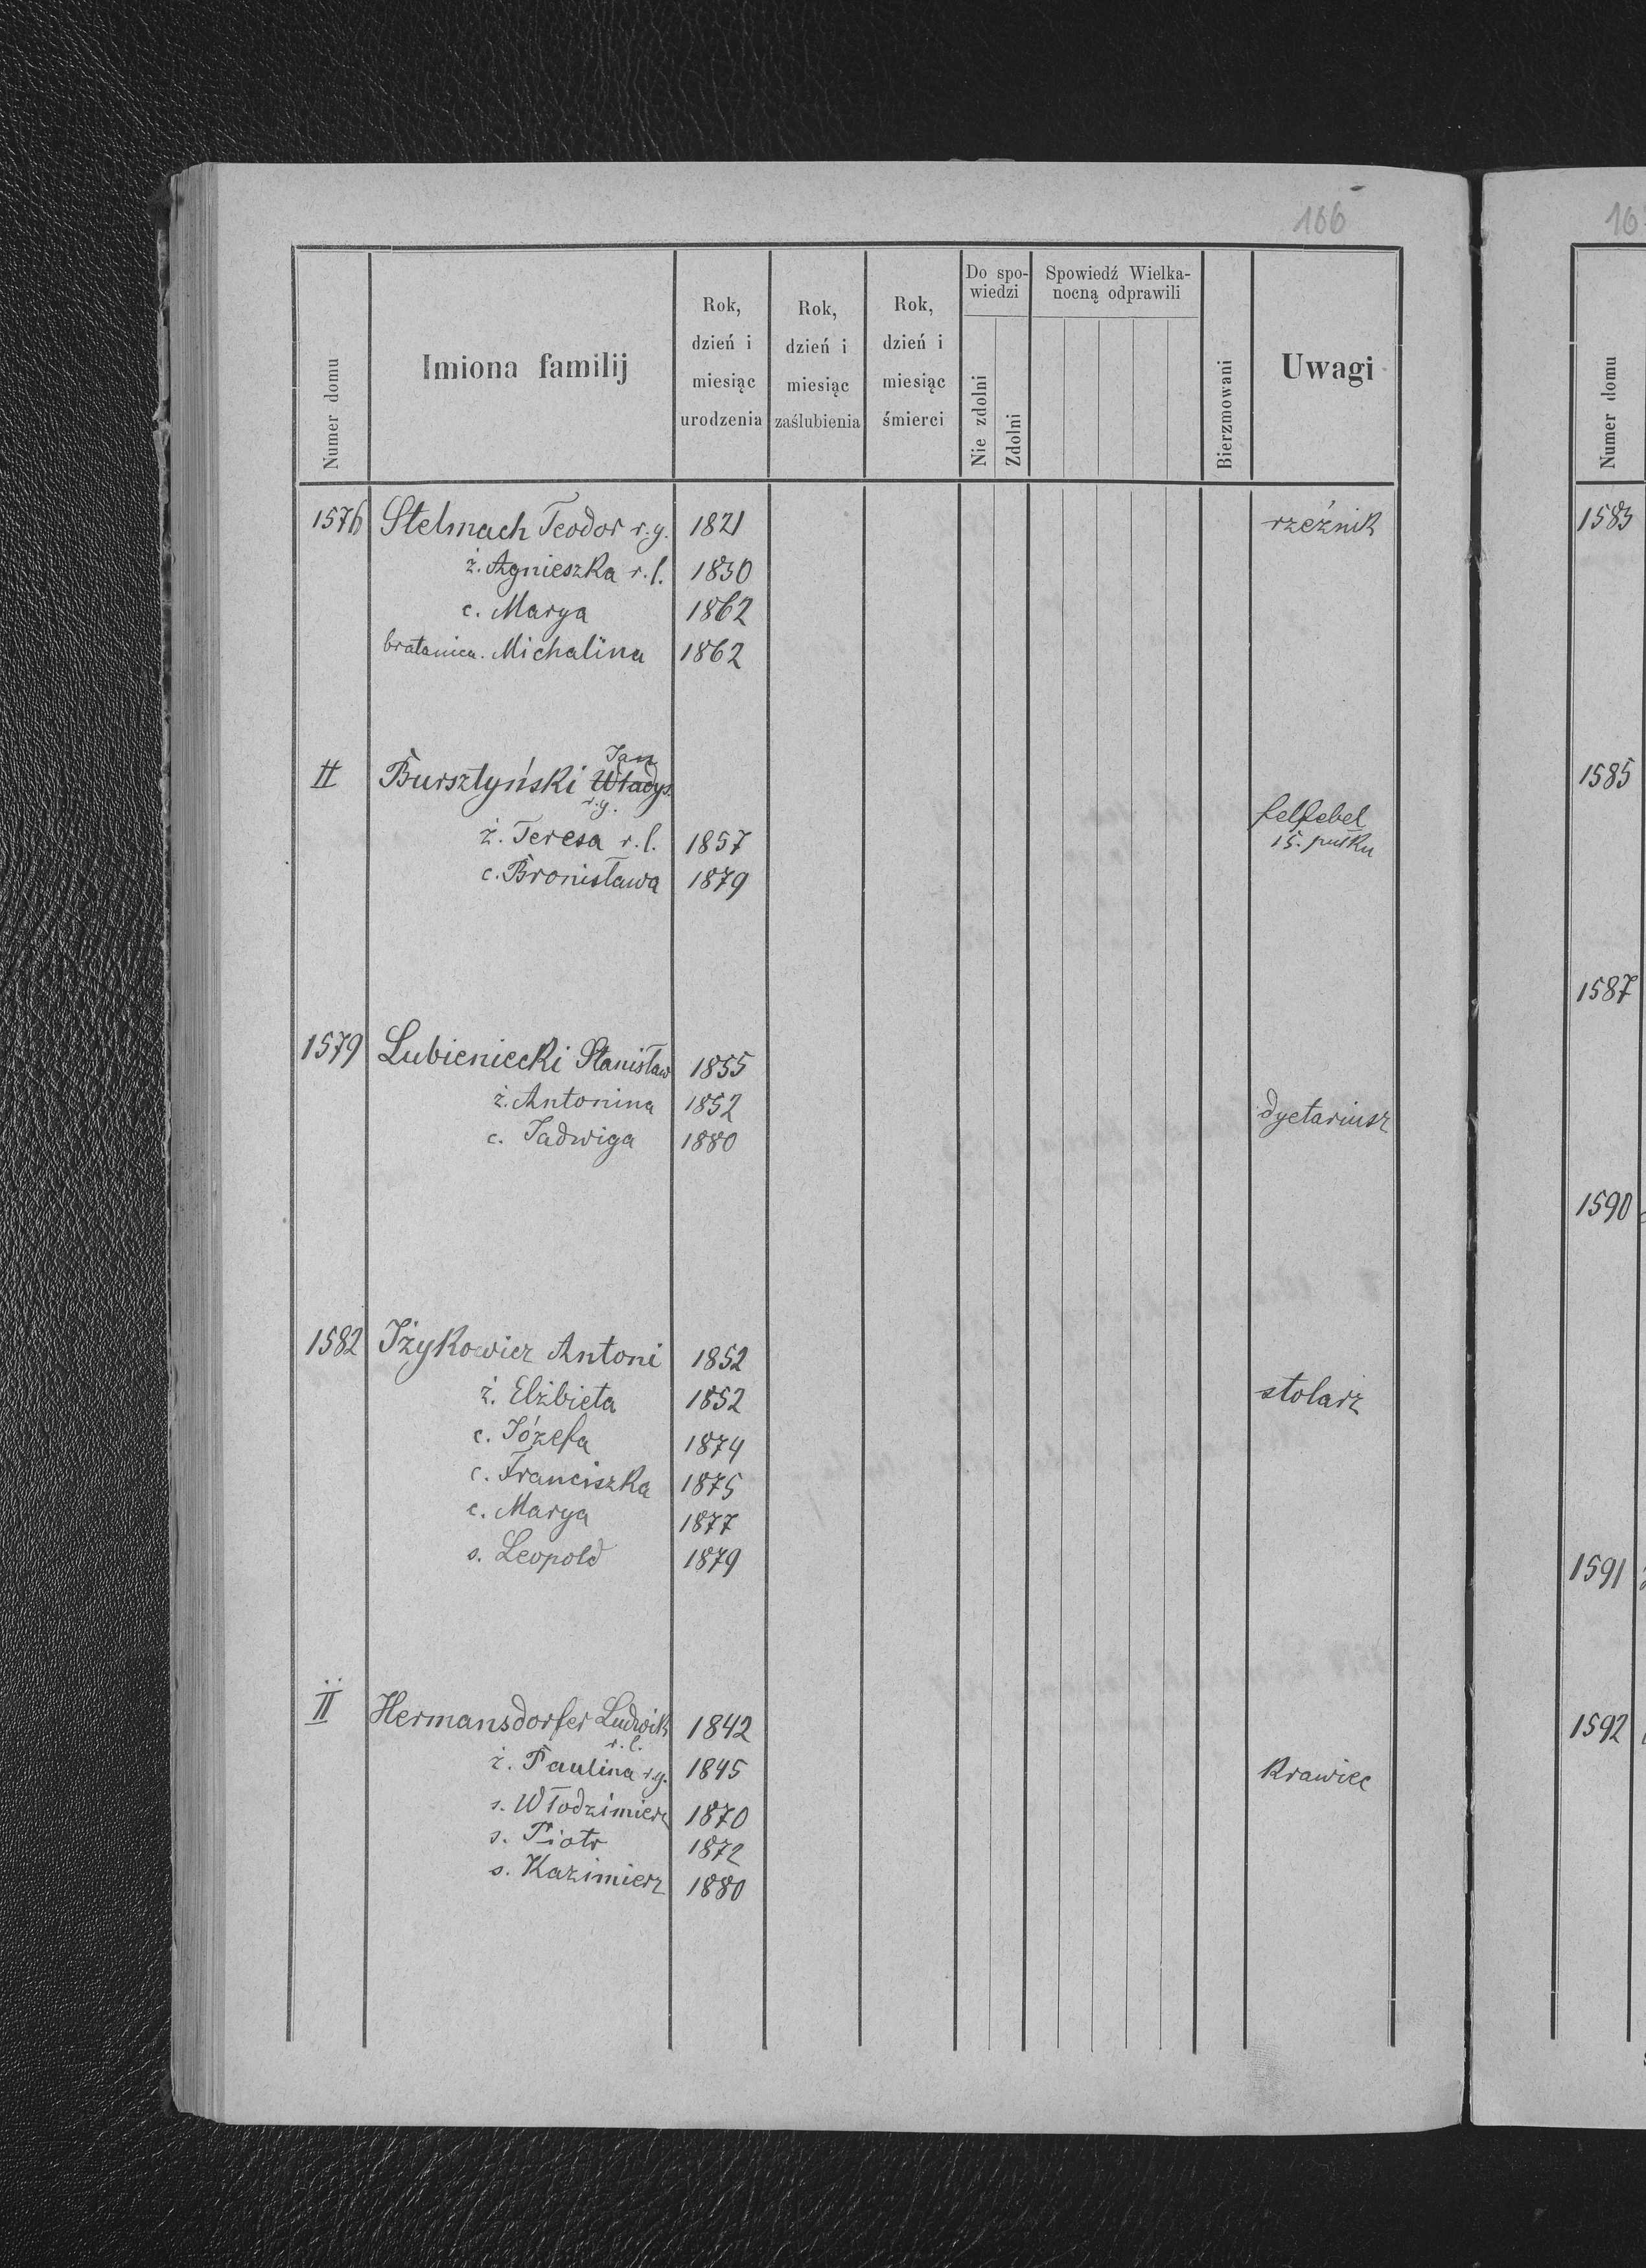 166
Numer domu
Imiona familij
Rok, dzień i miesiąc urodzenia
Rok, dzień i miesiąc zaślubienia
Rok, dzień i miesiąc śmierci
Do spo-
wiedzi
Nie zdolni
Zdolni
Spowiedź Wielka-
nocną odprawili
Bierzmowani
Uwagi
1576 Stelmach Teodor r.g. 1821 rzeźnik
ż. Agnieszka r.l. 1830
c. Marya 1862
bratanica. Michalina 1862
Jan
II Bursztyński Władys.
r.g.
felfebel
ż. Teresa r.l. 1857 15. pułku
c. Bronisława 1879
1579 Lubieniecki Stanisław 1855
ż. Antonina 1852 dyetariusz
c. Jadwiga 1880
1582 Iżykowicz Antoni 1852
ż. Elżbieta 1852 stolarz
c. Józefa 1874
c. Franciszka 1875
c. Marya 1877
s. Leopold 1879
II Hermansdorfer Ludwik 1842
r.l.
ż. Paulina r.g. 1845 krawiec
s. Włodzimierz 1870
s. Piotr 1872
s. Kazimierz 1880
16
Numer domu
1583
1585
1587
1590
1591
1592